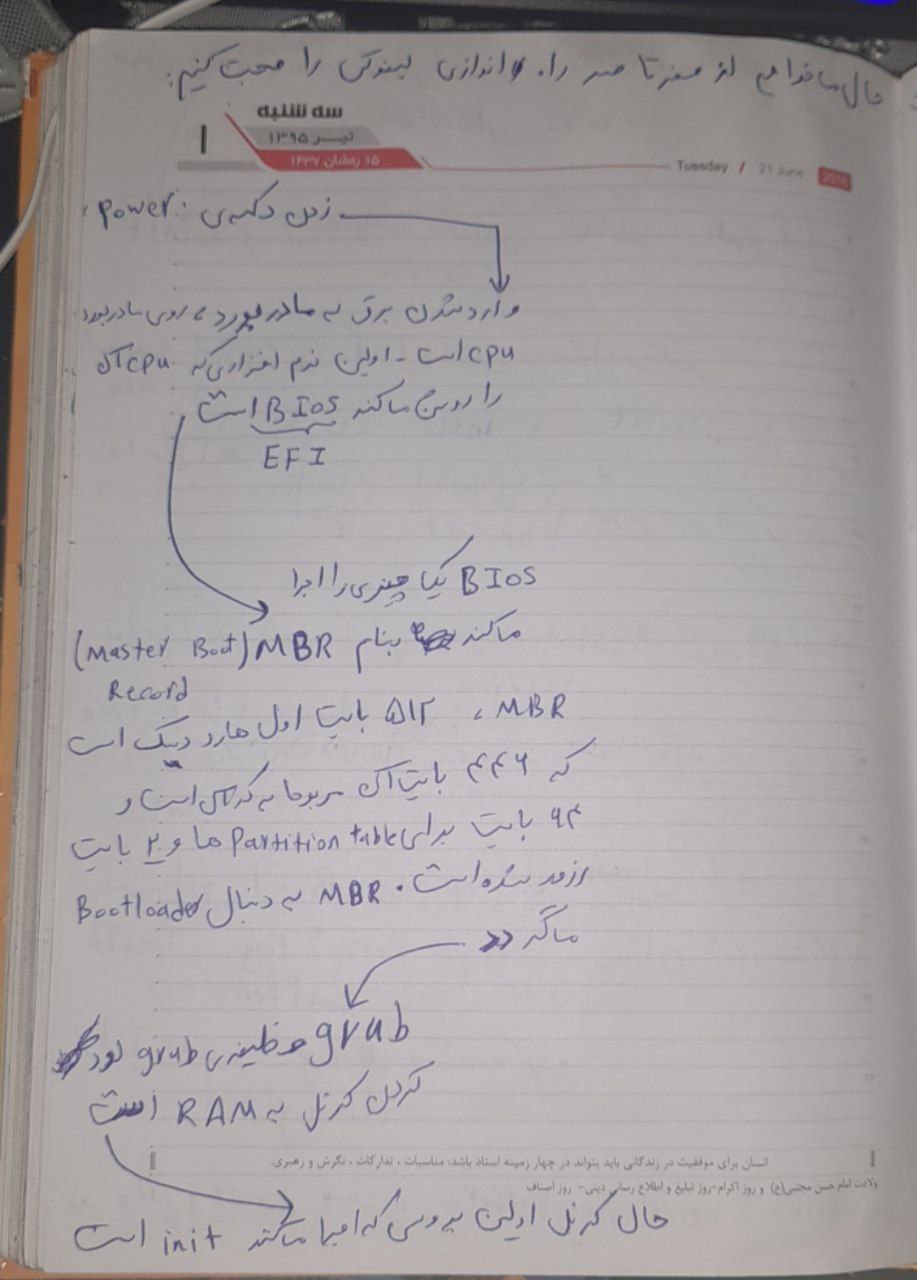 حال ما خواهیم از صفر تا صد راه اندازی لینوکس را صحبت کنیم:
سه شنبه
۱
تیر ۱۳۹۵
۱۵ رمضان ۱۴۳۷
Tuesday / 21 June 2016
زدن دکمه‌ی power:
وارد شدن برق به مادربورد، روی مادربورد
cpu است - اولین نرم افزاری که cpu آن
را روشن میکند BIOS است
EFI
BIOS یک چیزی را اجرا
میکند بنام MBR (Master Boot
Record
MBR، ۵۱۲ بایت اول هارد دیسک است
که ۴۴۶ بایت آن مربوط به است و
۶۴ بایت برای Partition table ها و ۲ بایت
رزرو شده است. MBR به دنبال Bootloader
میگردد
grub وظیفه‌ی grub لود
کردن کرنل به RAM است
انسان برای موفقیت در زندگانی باید بتواند در چهار زمینه استاد باشد: مناسبات ، تدارکات ، نگرش و رهبری.
ولادت امام حسن مجتبی(ع) و روز اکرام-روز تبلیغ و اطلاع رسانی دینی- روز اصناف
حال کرنل اولین پروسس که اجرا میکند init است